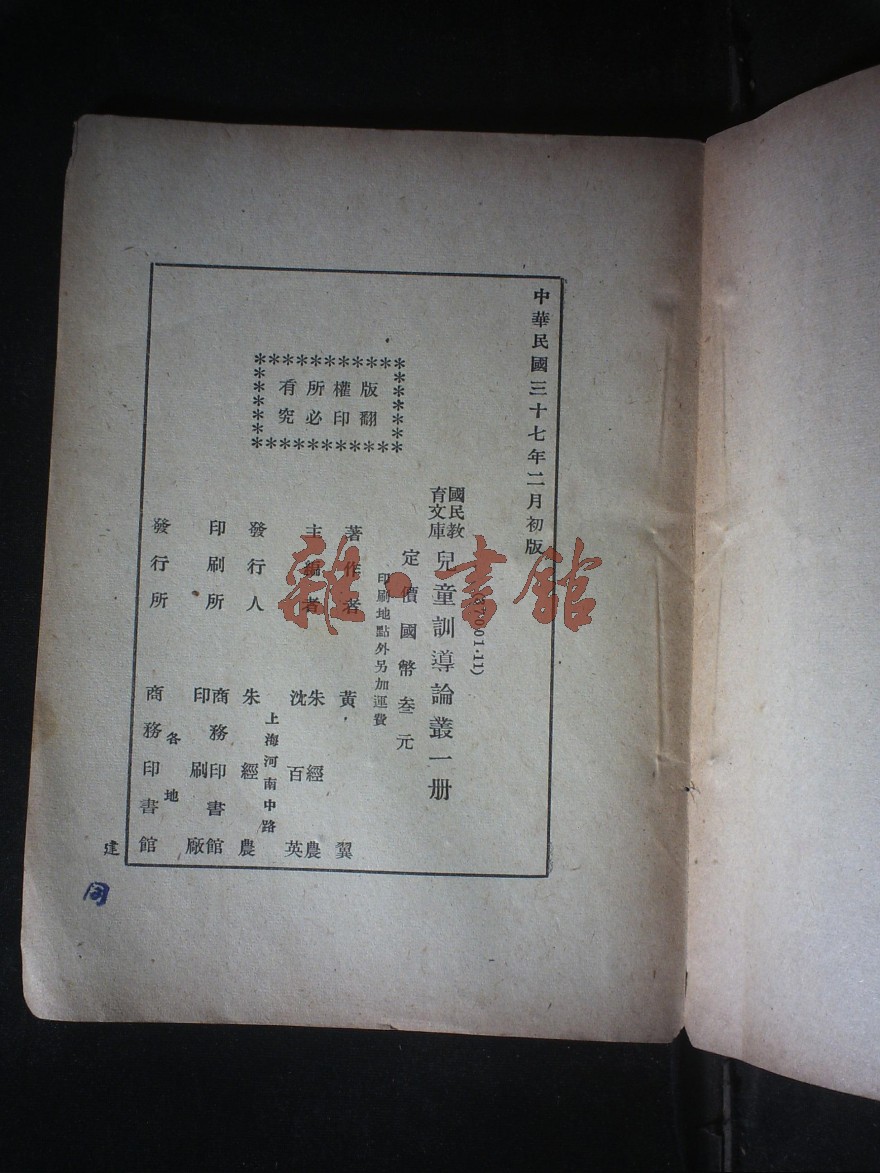 中華民國三十七年二月初版
(67001·11)
國民教
育文庫
兒童訓導論叢一册
定價國幣叁元
印刷地點外另加運費
版權所有
翻印必究
著作者 黃翼
主編者 朱經農
沈百英
上海河南中路
發行人 朱經農
印刷所 商務印書館
印刷廠
各地
發行所 商務印書館
建
雜·書館